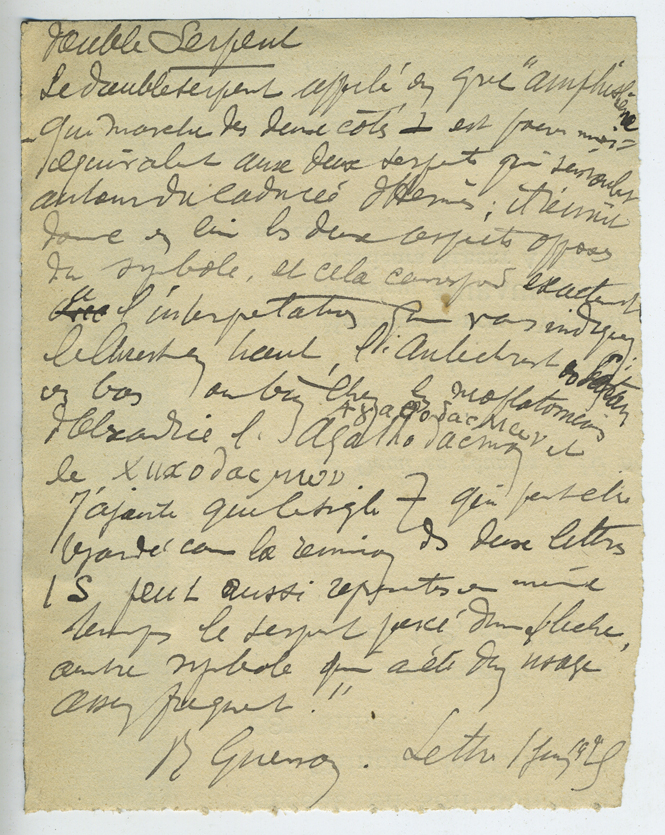 Double Serpent
Le double serpent appelé en grec "amphisbène
qui marche des deux côtés est pour moi
l'équivalent aux deux serpents qui s'enroulent
autour du caducée d'Hermès ; il réunit
donc en lui les deux aspects opposés
du symbole, et cela correspond exactement
à l'interprétation que vous indiquez,
le Christ en haut, l'Antechrist ou Satan
en bas ou bien chez les neoplatoniciens
αγαθοδαιμων
d'Alexandrie l'Agathodaemon et
le κακοδαιμων
J'ajoute que le sigle qui peut être
regardé comme la réunion des deux lettres
I S peut aussi représenter en même
temps le serpent percé d'une flèche,
autre symbole qui a été d'un usage
assez fréquent."
R Guenon. Lettre 1925